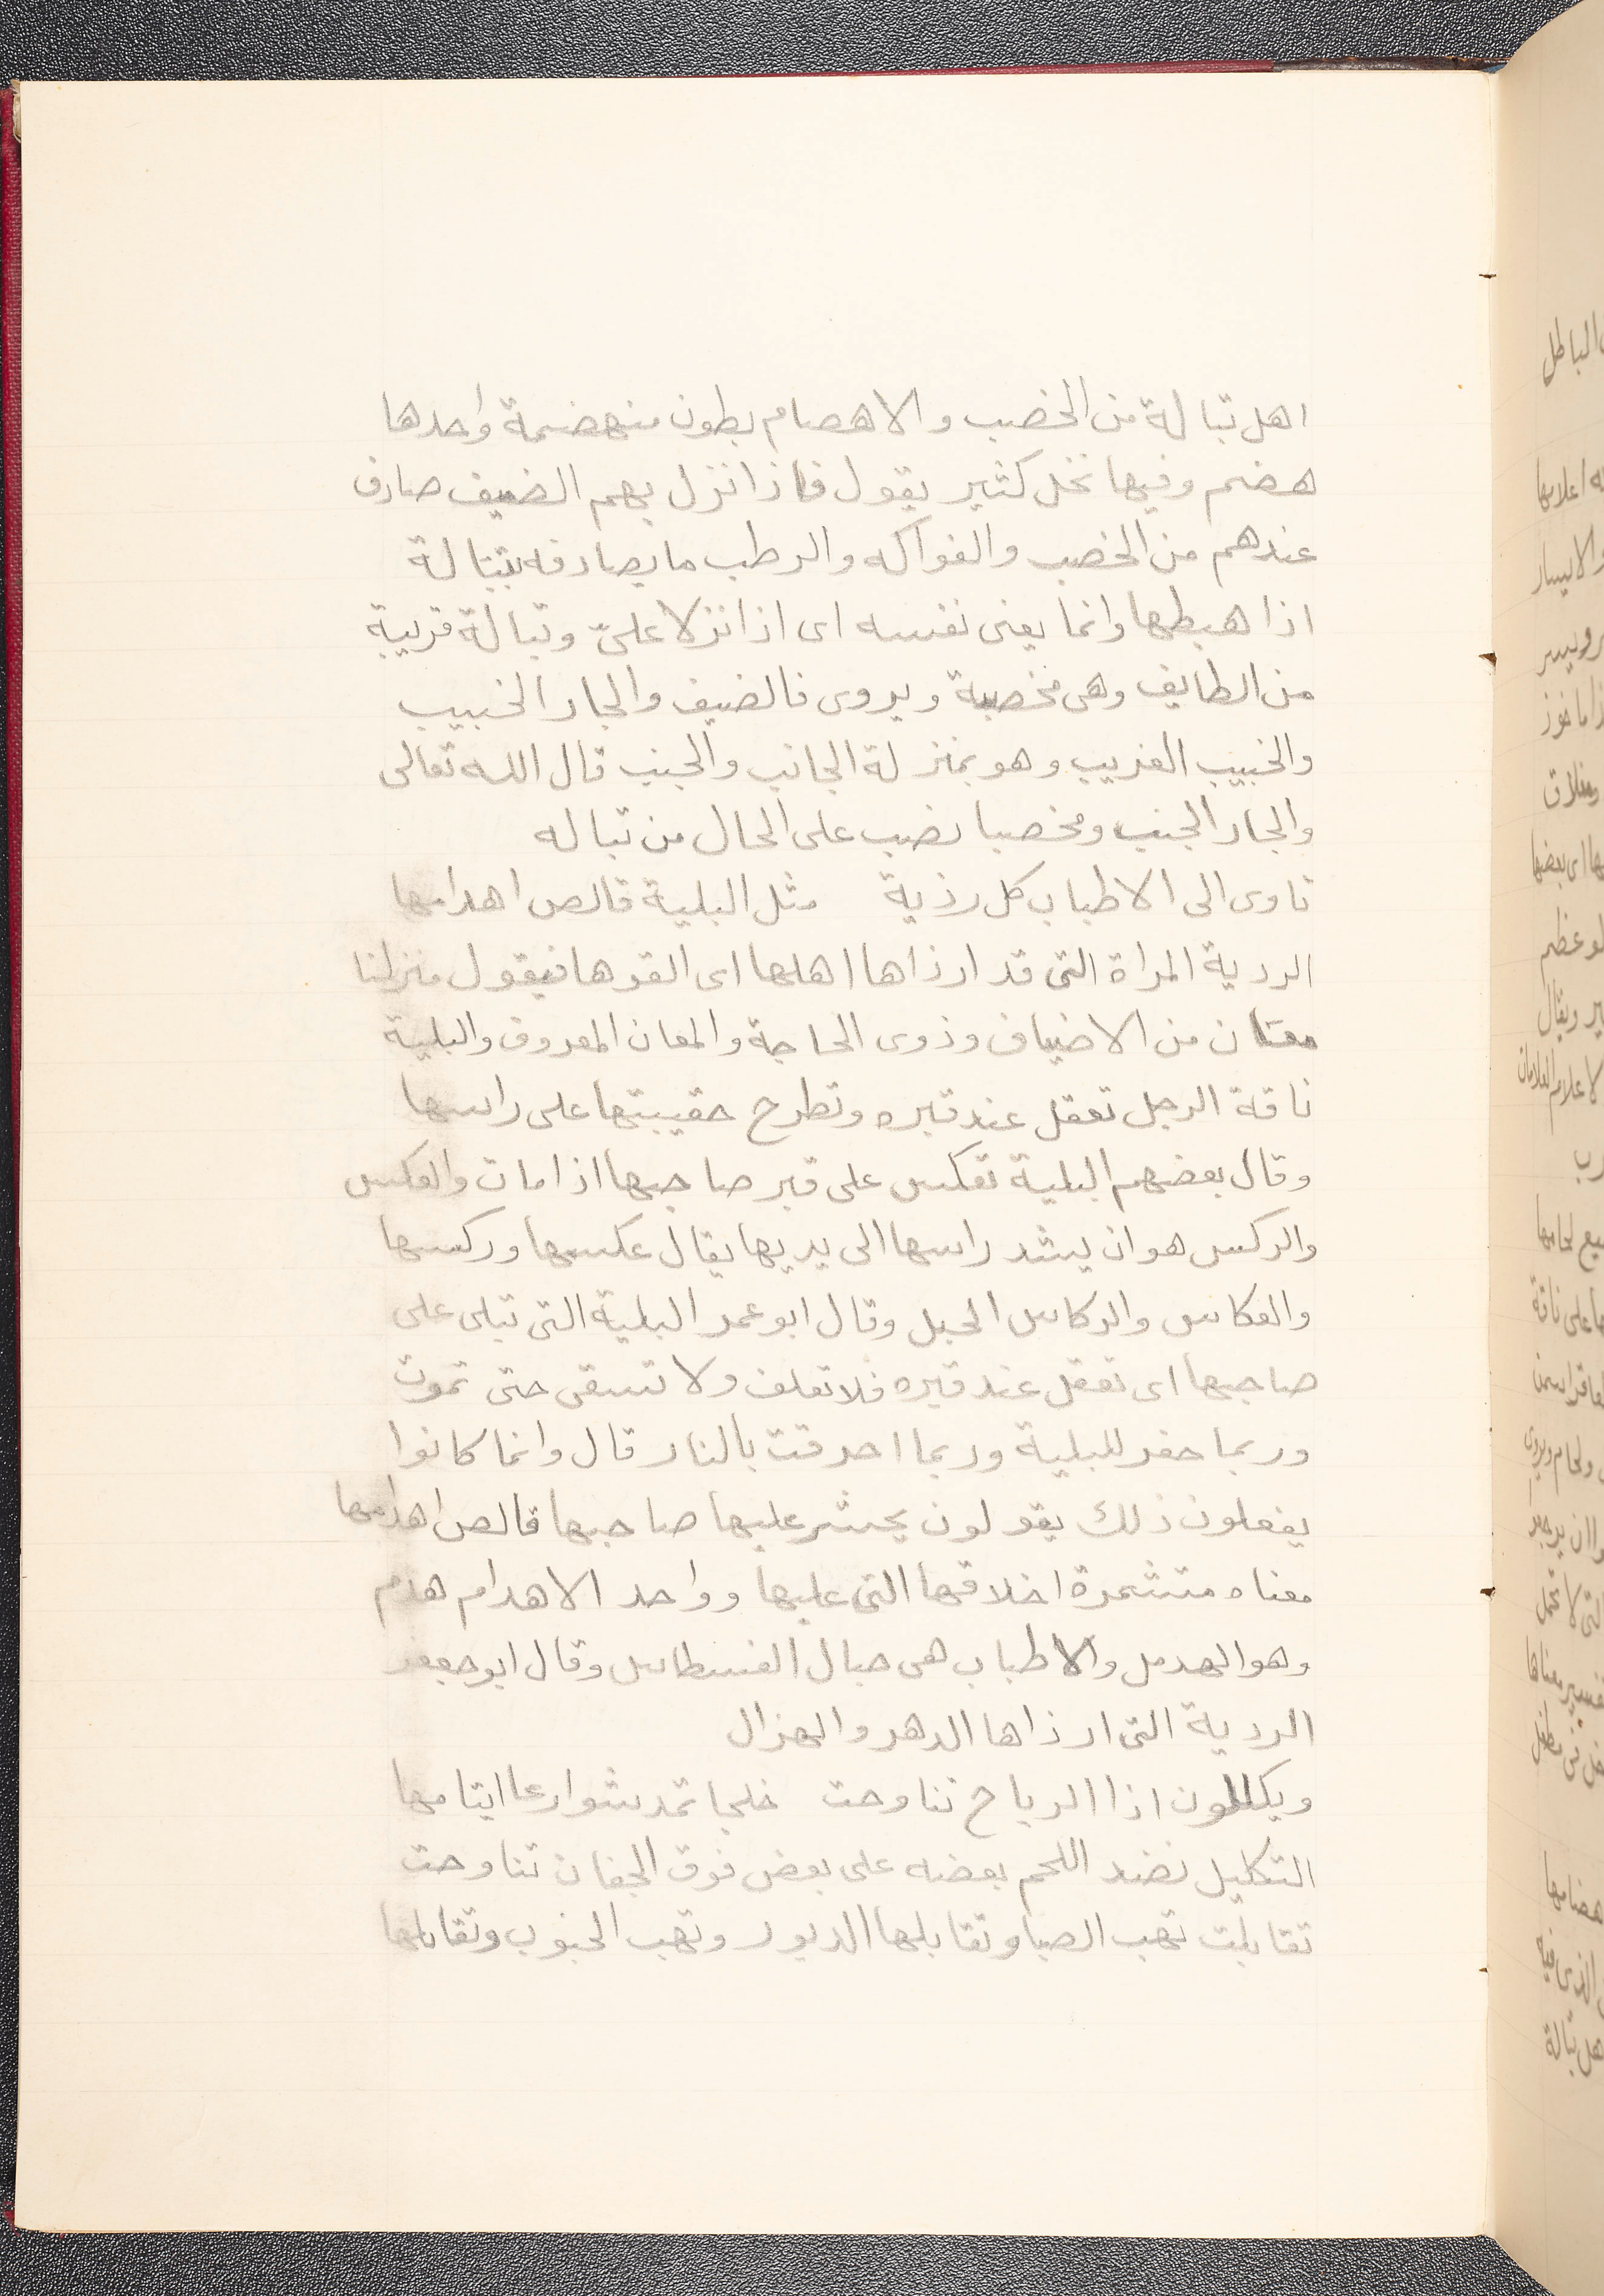 اهل تبالة من الخصب والاهصام بطون منهضمة واحدها
هضم وفيها نخل كثير يقول فاذا نزل بهم الضيف صادف
عندهم من الخصب والفواكه والرطب ما يصادفه بتبالة
اذا هبطها وانما يعنى نفسه اى اذا نزلا علىّ وتبالة قريبة
من الطايف وهى مخصبة ويروى فالضيف والجار الخبيب
والخبيب الغريب وهو بمنزلة الجانب والجنب قال الله تعالى
والجار الجنب ومخصبا نصب على الحال من تباله
تاوى الى الاطباب كل رذية مثل البلية قالص اهدامها
الردية المراة التى قد ارذاها اهلها اى القوها فيقول منزلنا
معان من الاضياف وذوى الحاجة والمعان المعروف والبلية
ناقة الرجل تعقل عند قبره وتطرح حقيبتها على راسها
وقال بعضهم البلية تعكس على قبر صاحبها اذا مات والعكس
والركس هو ان يشد راسها الى يديها يقال عكسها وركسها
والعكاس والركاس الحبل وقال ابو عمر البلية التى تبلى على
صاحبها اى تعقل عند قبره فلا تعلف ولا تسقى حتى تموت
وربما حفر للبلية وربما احرقت بالنار قال وانما كانوا
يفعلون ذلك يقولون يحشر عليها صاحبها قالص اهدامها
معناه متشمرة اخلاقها التى عليها وواحد الاهدام هدم
وهو الهدمل والاطباب هى حبال الفسطاس وقال ابو جعفر
الردية التى ارذاها الدهر والهزال
ويكللون اذا الرياح تناوحت خلجا تمد شوارعا ايتامها
التكليل نضد اللحم بعضه على بعض فوق الجفان تناوحت
تقابلت تهب الصبا وتقابلها الدبور وتهب الجنوب وتقابلها